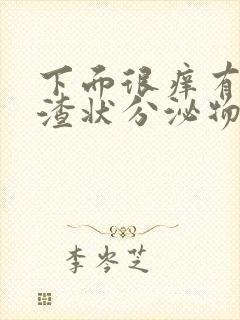 下面很痒有
渣状分泌物
李岑芝